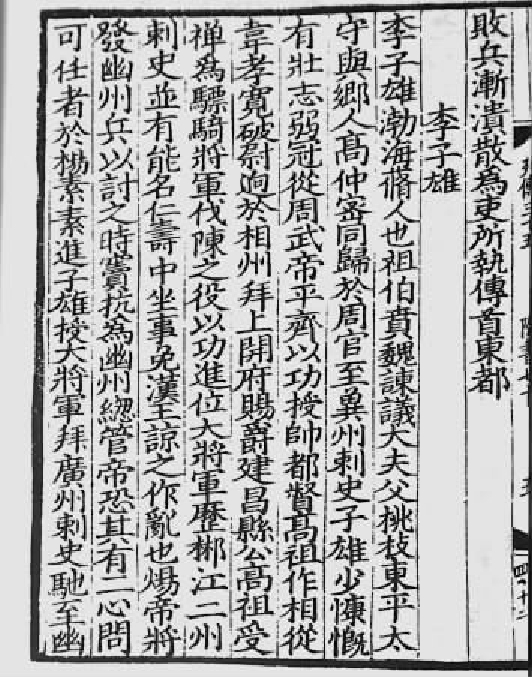 敗兵漸潰散爲吏所執傳首東都
李子雄
李子雄渤海蓨人也祖伯賁魏諫議大夫父桃枝東平太
守與鄉人高仲密同歸於周官至兾州刺史子雄少慷慨
有壯志弱冠從周武帝平齊以功授帥都督高祖作相從
韋孝寬破尉迥於相州拜上開府賜爵建昌縣公高祖受
禅爲驃騎將軍伐陳之役以功進位大將軍歷郴江二州
刺史並有能名仁壽中坐事免漢王諒之作亂也煬帝將
發幽州兵以討之時竇抗為幽州緫管帝恐其有二心問
可任者於楊素素進子雄授大將軍拜廣州刺史馳至幽